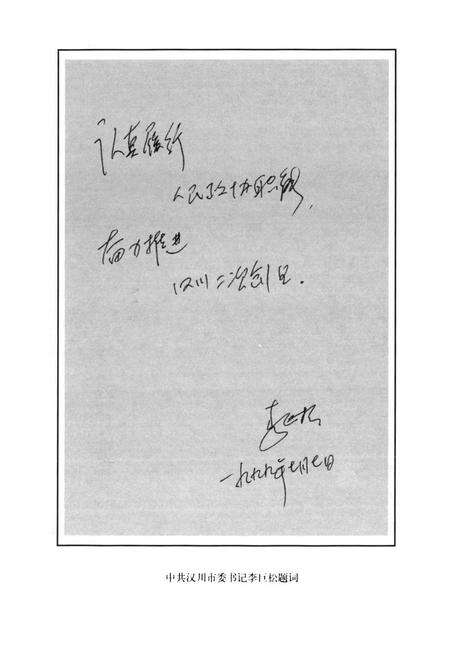 认真履行
人民政协职能,
奋力推进
汉川二次创业.
李巨松
一九九九年七月七日
中共汉川市委书记李巨松题词